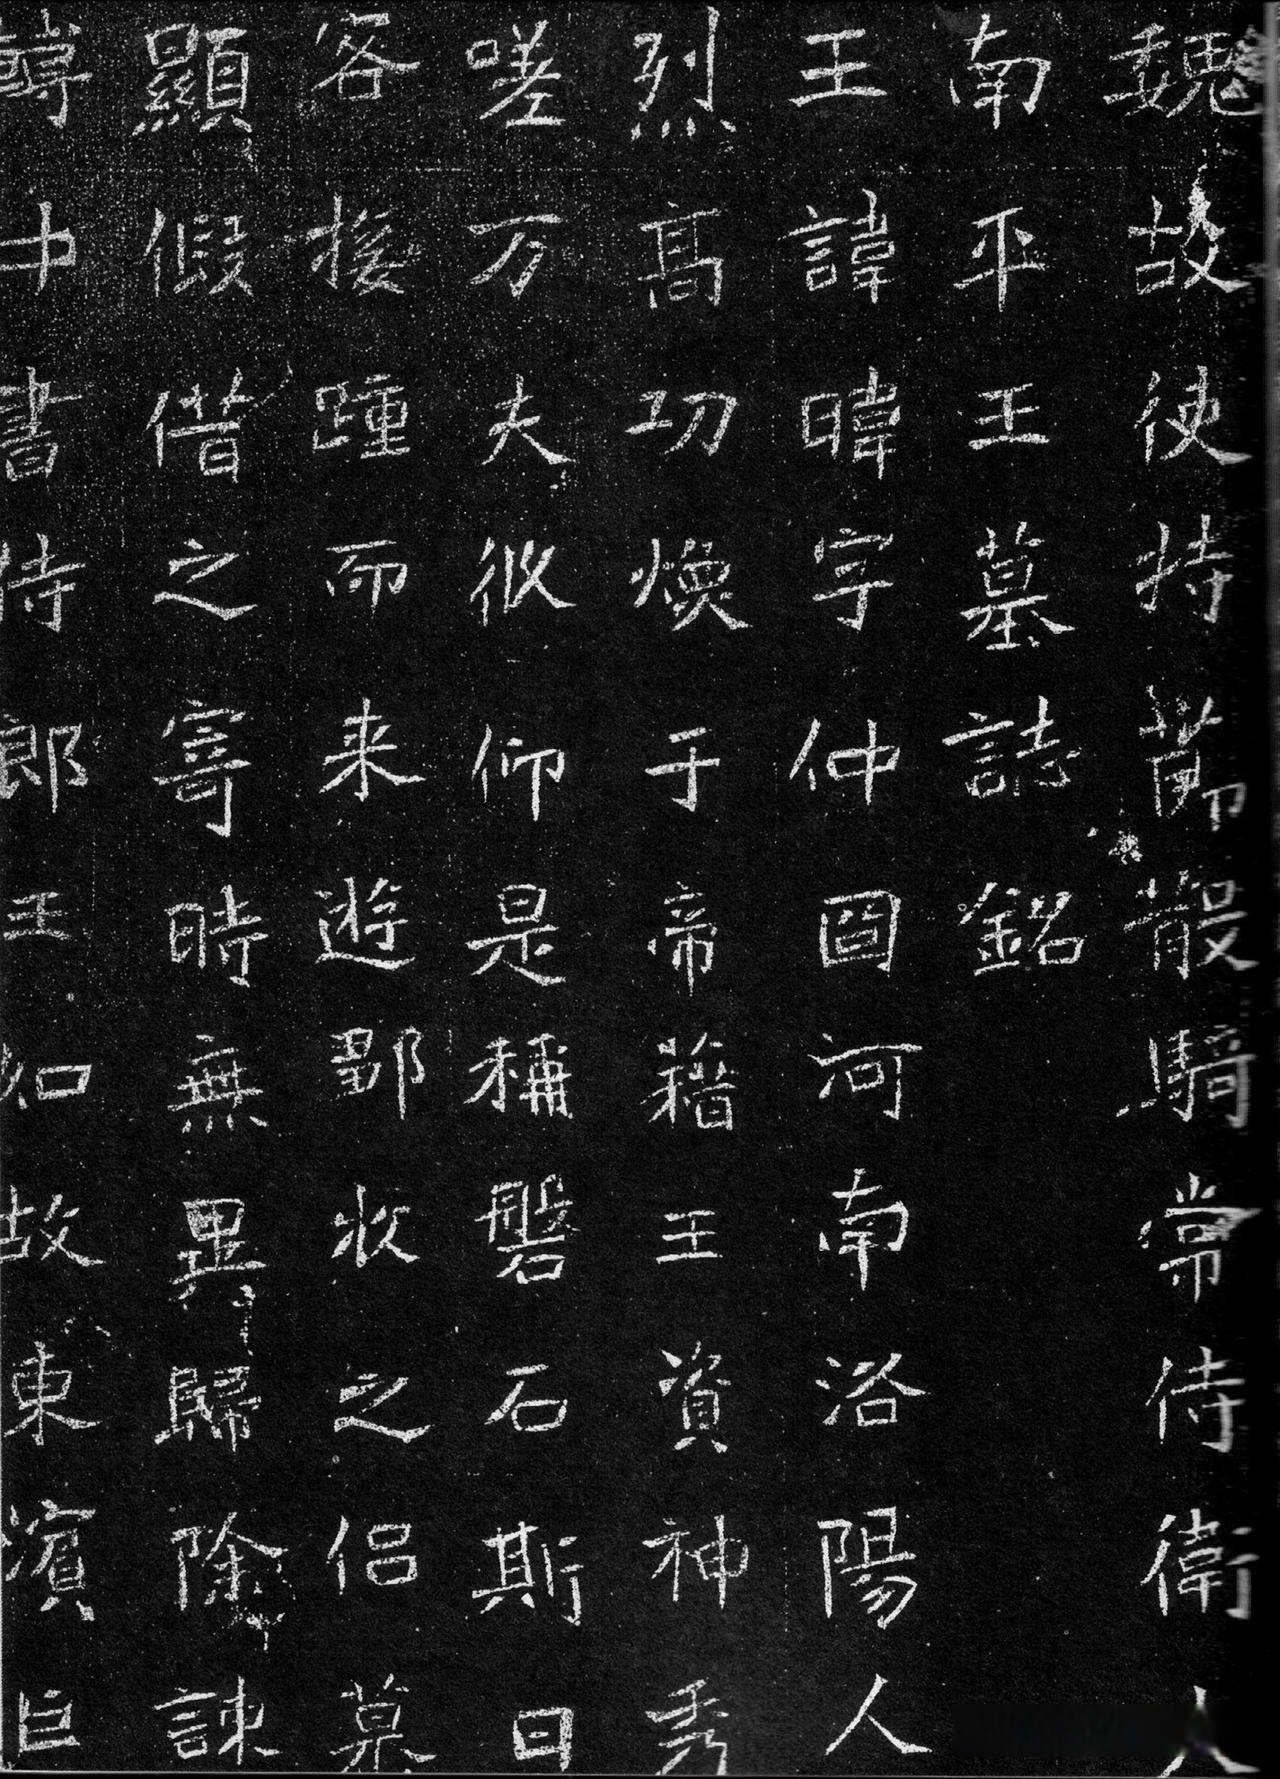 魏故使持節散騎常侍衛大
南平王墓誌銘
王諱暐字仲囧河南洛陽人
烈高功煥于帝籍王資神秀
嗟万夫攸仰是稱磐石斯曰
客接踵而来遊郢狀之侣慕
顯假借之寄時無異歸除諫
轉中書侍郎王如故東濱巨